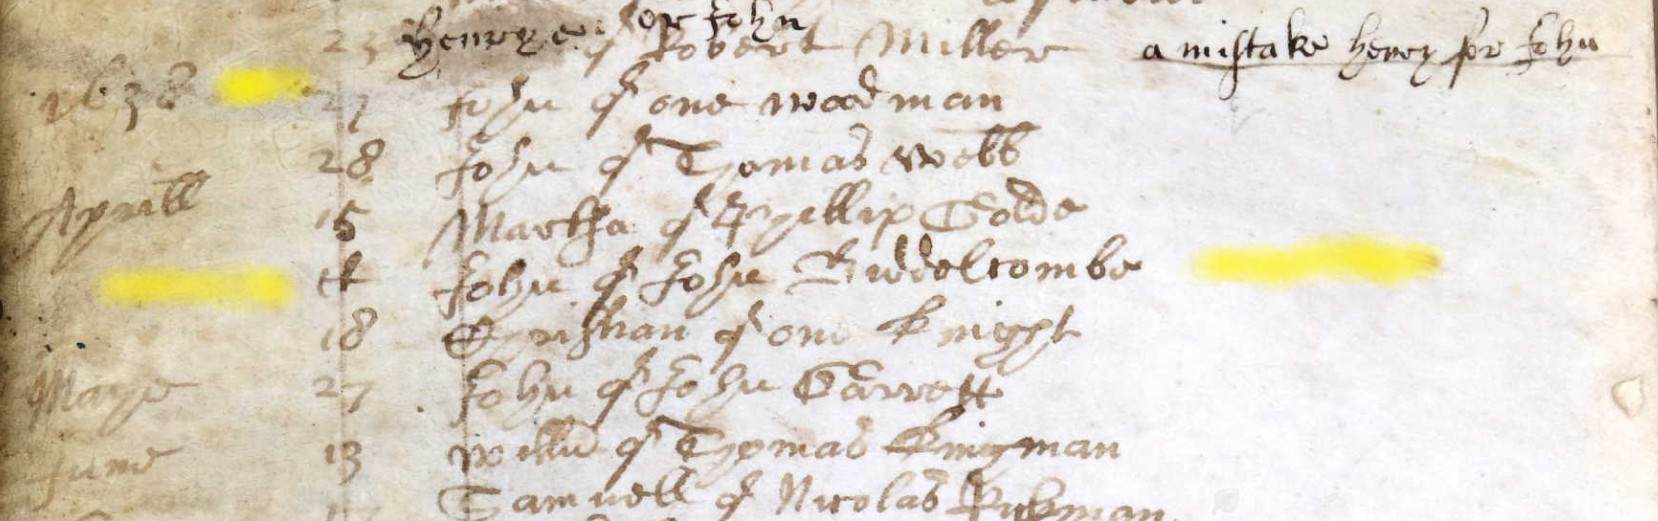 23 Henrye or John of Robert Miller a mistake henry for John
1638 27 John of one woodman
28 John of Thomas Webb
Aprill 15 Martha of Phillip Golde
John of John Biddelcombe
18 Christian of one Knight
Maye 27 John of John Garrett
June 13 Willm of Thomas Kingman
Samuell of Nicolas